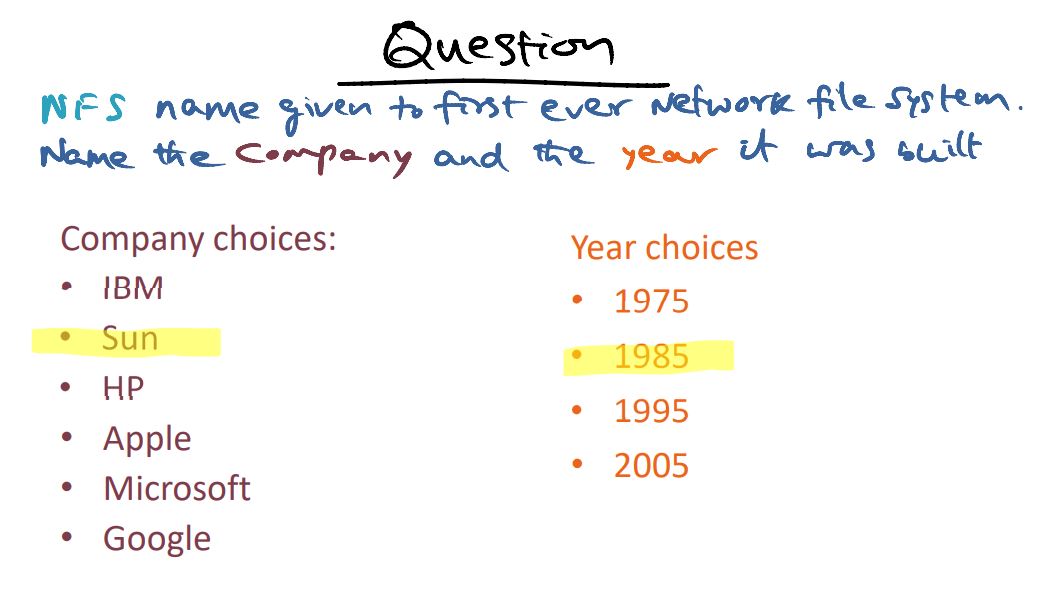 Question
NFS name given to first ever Network file system.
Name the Company and the year it was built
Company choices:
• IBM
• Sun
• HP
• Apple
• Microsoft
• Google
Year choices
• 1975
• 1985
• 1995
• 2005